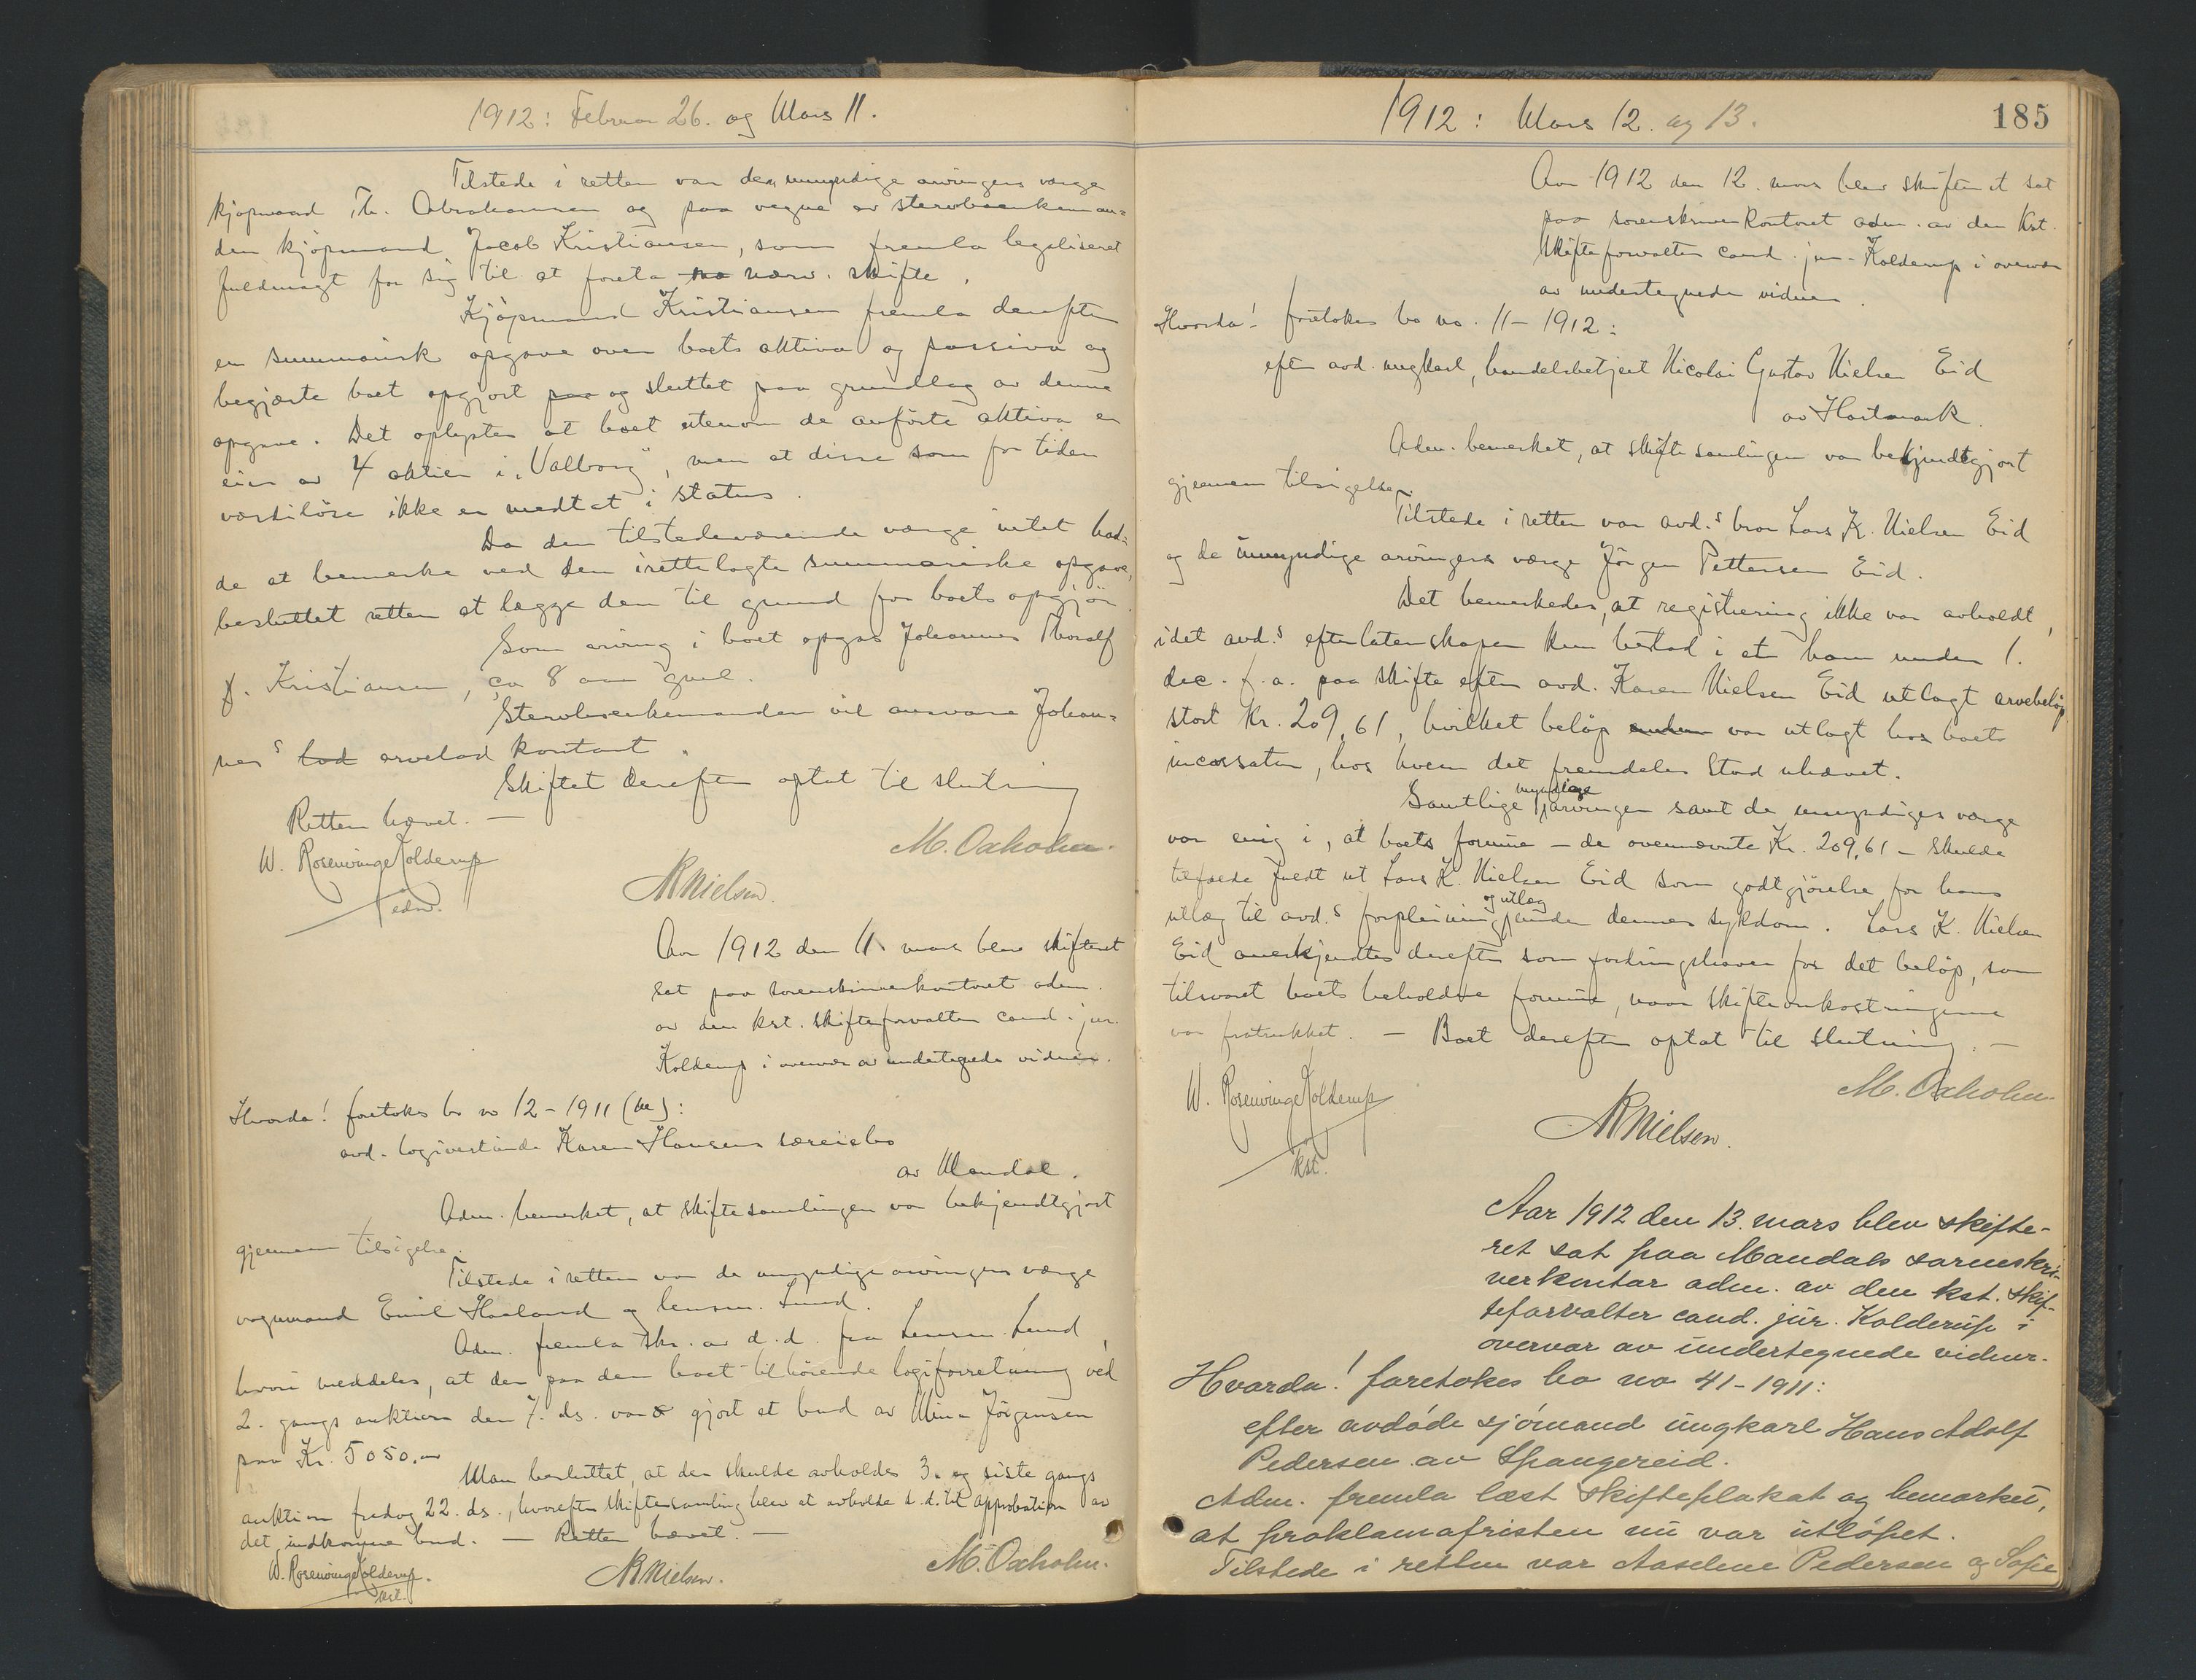 1912: Februar 26. og Mars 11.
Tilstede i retten var den umyndige arvingers værge
kjøpmand Th. Abrahamsen og paa vegne av stervboenkeman-
den kjøpmand Jacob Kristiansen, som fremla legaliseret
fuldmagt for sig til at foreta nærv. skifte.
Kjøpmand Kristiansen fremla derefter
en summarisk opgave over boets aktiva og passiva og
begjærte boet opgjort paa og sluttet paa grundlag av denne
opgave. Det oplystes at boet utenom de anførte aktiva er
eier av 4 aktier i "Valborg", men at disse som for tiden
værdiløse ikke er medtat i status.
Da den tilstedeværende værge intet had-
de at bemerke ved den irettelagte summariske opgave,
besluttet retten at lægge den til grund for boets opgjør
Som arving i boet opgas Johannes Thoralf
J. Kristiansen, ca 8 aar gml.
Stervboenkemanden vil ansvare Johan-
nes's lod arvelod kontant.
Skiftet derefter optat til slutning
Retten hævet. —
W. Rosenvinge Kolderup
edw.
M. Oxholm.
NRNielsen.
Aar 1912 den 11 mars blev skifteret
sat paa sorenskriverkontoret adm.
av den kst. skifteforvalter cand. jur.
Kolderup i overvær av undertegnede vidner.
Hvorda! foretokes bo no 12-1911 (M):
avd. logivertinde Karen Hansens særeiebo
av Mandal.
Adm. bemerket, at skiftesamlingen var bekjendtgjort
gjennem tilsigelse.
Tilstede i retten var de umyndige arvingers værge
vognmand Emil Haaland og lensm. Lund.
Adm. fremla skr. av d.d. fra Lensm. Lund,
hvori meddeles, at der paa den boet tilhørende logiforretning ved
2. gangs auktion den 7. ds. var gjort et bud av Mina Jörgensen
paa Kr. 5050.00
Man besluttet, at der skulde avholdes 3. og siste gangs
auktion fredag 22. ds., hvorefter skiftesamling blev at avholde s.d. til approbation av
det indkomne bud. — Retten hævet. —
W. Rosenvinge Kolderup.
NRNielsen.
M. Oxholm.
1912: Mars 12. og 13.
185
Aar 1912 den 12. mars blev skifteret sat
paa sorenskriverkontoret adm. av den kst.
skifteforvalter cand. jur. Kolderup i overvær
av undertegnede vidner.
Hvorda! foretokes bo no. 11-1912:
efter avd. ungkarl, handelsbetjent Nicolai Gustav Nielsen Eid
av Hartmark.
Adm. bemerket, at skiftesamlingen var bekjendtgjort
gjennem tilsigelse.
Tilstede i retten var avd.s bror Lars K. Nielsen Eid
og de umyndige arvingers værge Jörgen Pettersen Eid.
Det bemerkedes, at registrering ikke var avholdt,
idet avd.s efterlatenskaper kun bestod i et ham under 1.
dec. f.a. paa skifte efter avd. Karen Nielsen Eid utlagt arvebeløp
stort Kr. 209,61, hvilket beløp var utlagt hos boets
incassator, hos hvem det fremdeles stod uhævet.
Samtlige myndige arvinger samt de umyndiges værge
var enig i, at boets formue — de ovennævnte Kr. 209,61 — skulde
tilfalde fuldt ut Lars K. Nielsen Eid som godtgjörelse for hans
utlæg til avd.s forpleining og utlæg under dennes sykdom. Lars K. Nielsen
Eid anerkjendtes derefter som fordringshaver for det beløp, som
tilsvaret boets beholdne formue, naar skifteomkostningerne
var fratrukket. — Boet derefter optat til slutning. —
W. Rosenvinge Kolderup
kst.
M. Oxholm.
NRNielsen.
Aar 1912 den 13. mars blev skifte-
ret sat paa Mandals sorenskri-
verkontor adm. av den kst. skif-
teforvalter cand. jur. Kolderup i
overvær av undertegnede vidner.
Hvorda! foretokes bo no 41-1911:
efter avdøde sjømand ungkarl Hans Adolf
Pedersen av Spangereid.
Adm. fremla læst skifteplakat og bemerket,
at proklamafristen nu var utløpet.
Tilstede i retten var Aaselene Pedersen og Sofie